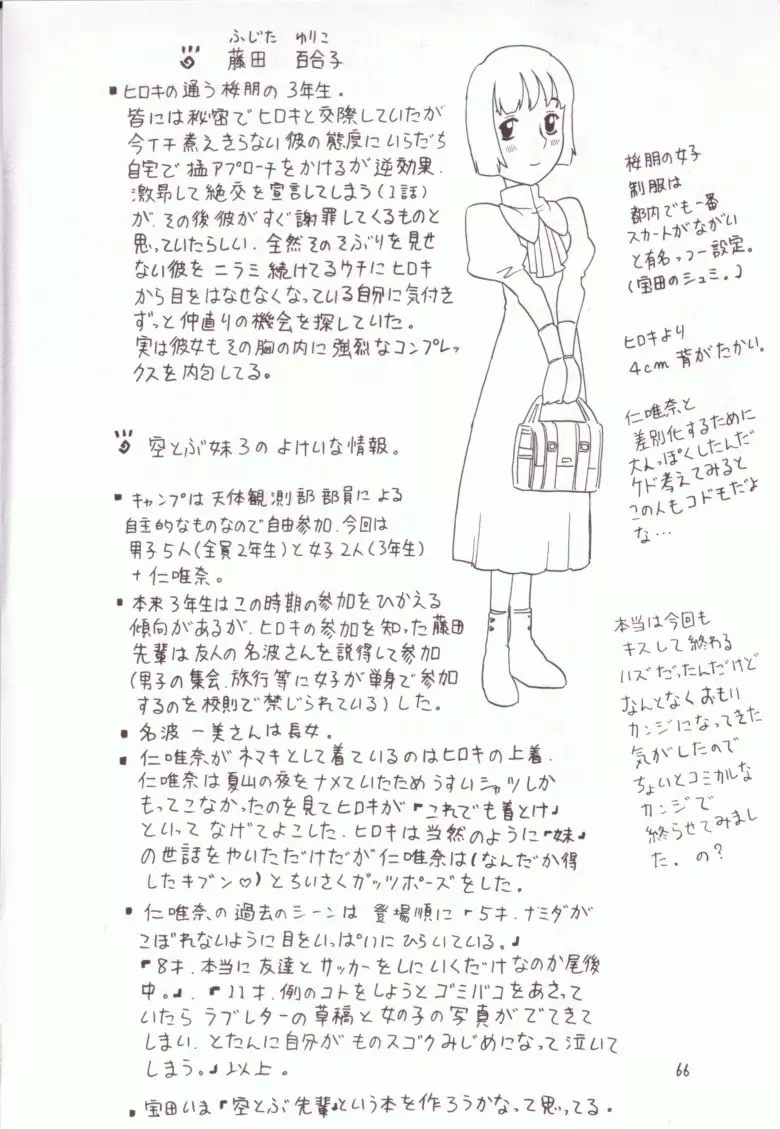 ふじた ゆりこ
藤田 百合子
▪ヒロキの通う桜朋の3年生。
皆には秘密でヒロキと交際していたが
今イチ煮えきらない彼の態度にいらだち
自宅で猛アプローチをかけるが逆効果.
激昂して絶交を宣言してしまう(1話)
が、その後彼がすぐ謝罪してくるものと
思っていたらしい. 全然そのそぶりを見せ
ない彼をニラミ続けてるウチにヒロキ
から目をはなせなくなっている自分に気付き
ずっと仲直りの機会を探していた。
実は彼女もその胸の内に強烈なコンプレッ
クスを内包してる。
桜朋の女子
制服は
都内でも一番
スカートがながい
と有名っつー設定。
(宝田のシュミ。)
ヒロキより
4cm 背がたかい。
仁唯奈と
差別化するために
大人っぽくしたんだ
ケド考えてみると
この人もコドモだよ
な…
空とぶ妹3のよけいな情報。
▪キャンプは天体観測部部員による
自主的なものなので自由参加.今回は
男子5人(全員2年生)と女子2人(3年生)
+仁唯奈。
▪本来3年生はこの時期の参加をひかえる
傾向があるが、ヒロキの参加を知った藤田
先輩は友人の名波さんを説得して参加
(男子の集会、旅行等に女子が単身で参加
するのを校則で禁じられている)した。
▪名波 一美さんは長女。
▪仁唯奈がネマキとして着ているのはヒロキの上着.
仁唯奈は夏山の夜をナメていたためうすいシャツしか
もってこなかったのを見てヒロキが『これでも着とけ』
といってなげてよこした.ヒロキは当然のように『妹』
の世話をやいただけだが仁唯奈は(なんだか得
したキブン♡)とちいさくガッツポーズをした。
▪仁唯奈の過去のシーンは 登場順に『5才.ナミダが
こぼれないように目をいっぱいにひらいている。』
『8才.本当に友達とサッカーをしにいくだけなのか尾後
中。』.『11才.例のコトをしようとゴミバコをあさって
いたらラブレターの草稿と女の子の写真がでてきて
しまい、とたんに自分がものスゴクみじめになって泣いて
しまう。』以上。
▪宝田いま『空とぶ先輩』という本を作ろうかなって思ってる。
本当は今回も
キスして終わる
ハズだったんだけど
なんとなくおもい
カンジになってきた
気がしたので
ちょいとコミカルな
カンジで
終らせてみまし
た. の?
66